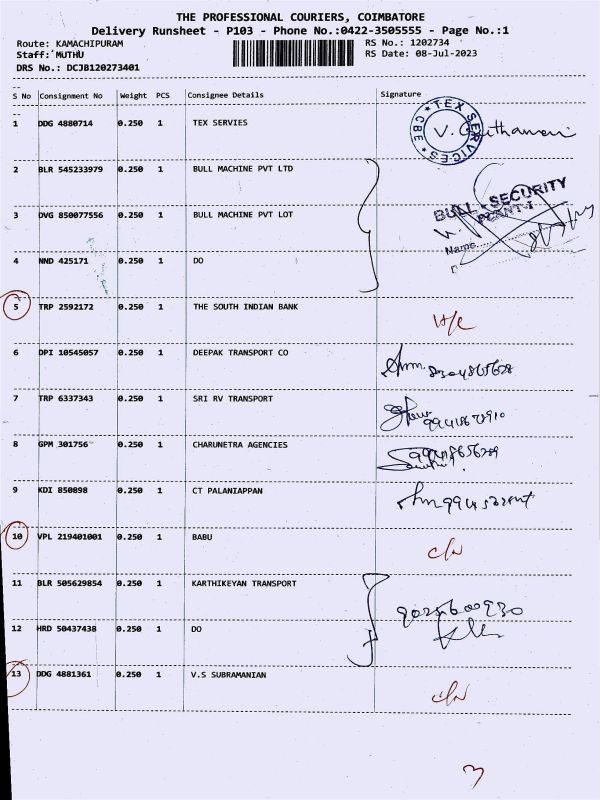 THE PROFESSIONAL COURIERS, COIMBATORE
Delivery Runsheet - P103 - Phone No.:0422-3505555 - Page No.:1
Route: KAMACHIPURAM RS No.: 1202734
Staff: MUTHU RS Date: 08-Jul-2023
DRS No.: DCJB120273401
S No Consignment No Weight PCS Consignee Details Signature
1 DDG 4880714 0.250 1 TEX SERVIES
TEX SERVICES CBE
2 BLR 545233979 0.250 1 BULL MACHINE PVT LTD
BULL SECURITY
PLANT-I
3 DVG 850077556 0.250 1 BULL MACHINE PVT LOT
Name
4 NND 425171 0.250 1 DO
5 TRP 2592172 0.250 1 THE SOUTH INDIAN BANK
6 DPI 10545057 0.250 1 DEEPAK TRANSPORT CO
7 TRP 6337343 0.250 1 SRI RV TRANSPORT
8 GPM 301756 0.250 1 CHARUNETRA AGENCIES
9 KDI 850898 0.250 1 CT PALANIAPPAN
10 VPL 219401001 0.250 1 BABU
11 BLR 505629854 0.250 1 KARTHIKEYAN TRANSPORT
12 HRD 50437438 0.250 1 DO
13 DDG 4881361 0.250 1 V.S SUBRAMANIAN
3